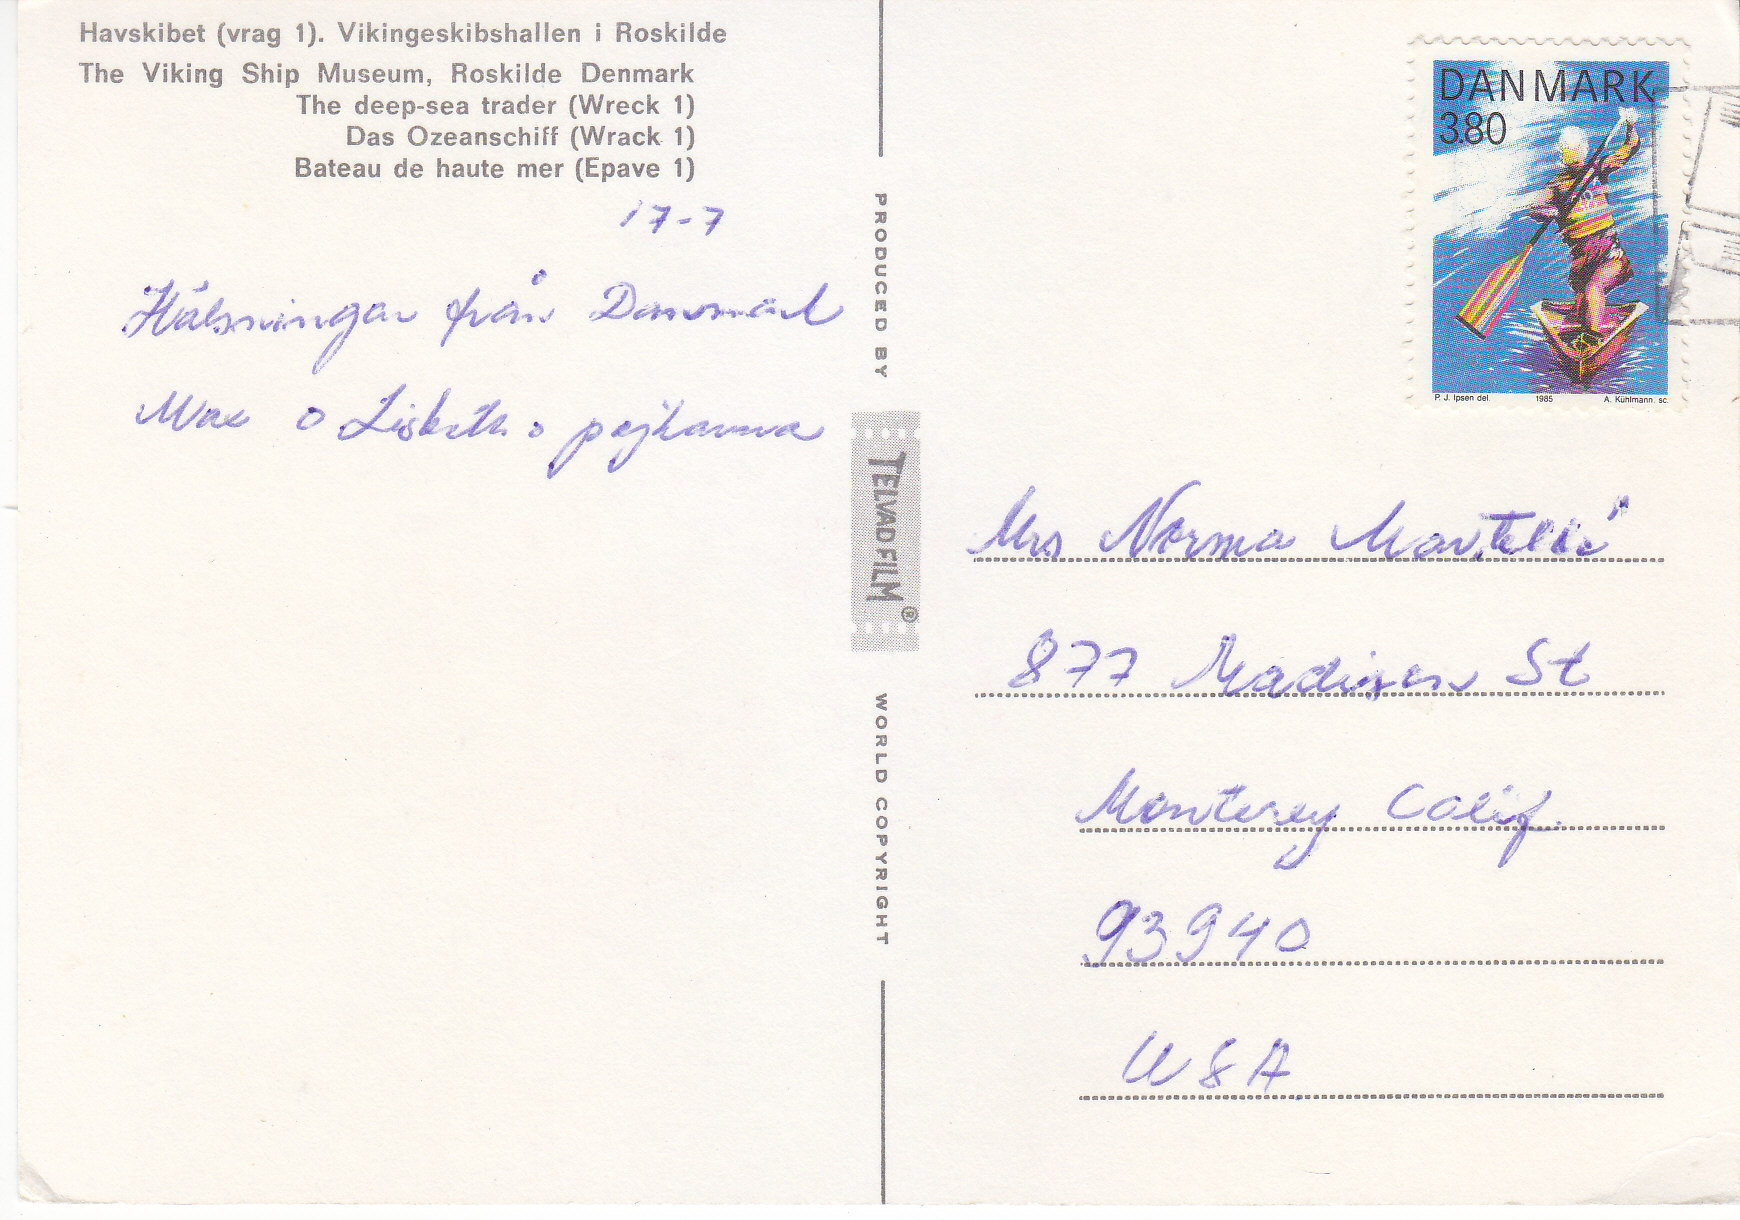 Havskibet (vrag 1). Vikingeskibshallen i Roskilde
The Viking Ship Museum, Roskilde Denmark
The deep-sea trader (Wreck 1)
Das Ozeanschiff (Wrack 1)
Bateau de haute mer (Epave 1)
17-7
Hälsningar från Danmark
Max o Lisbeth o pojkarna
PRODUCED BY
TELVAD FILM ®
WORLD COPYRIGHT
DANMARK
3.80
P. J. Ipsen del. 1985 A. Kühlmann. sc.
Mrs Norma Martelli
877 Madison St
Monterey Calif.
93940
USA